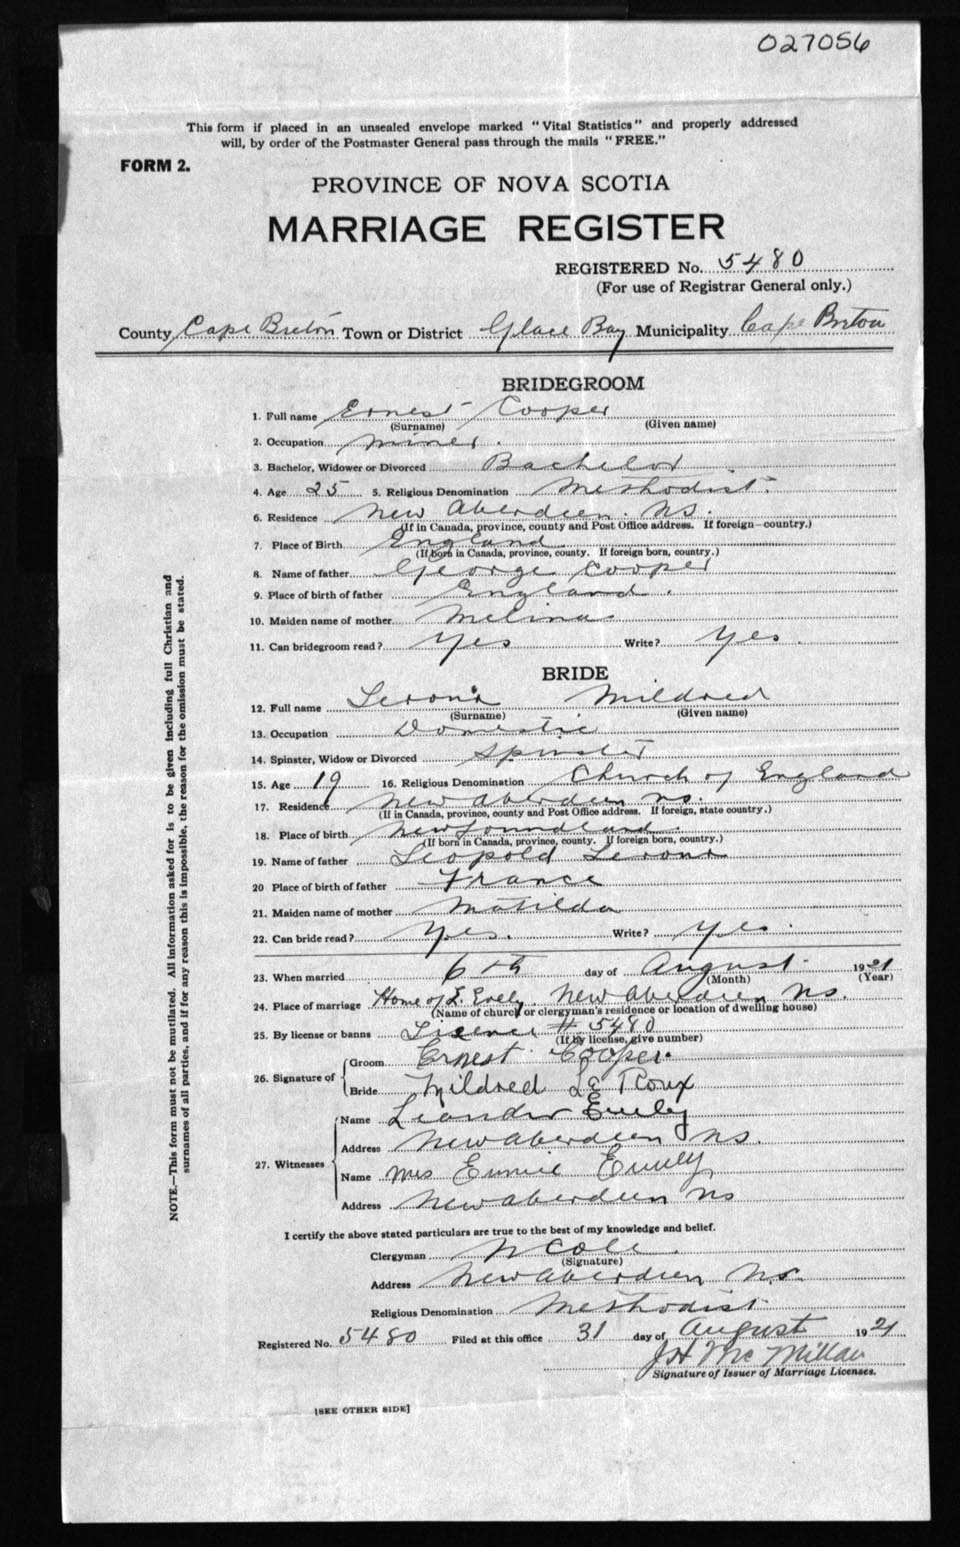 027056
This form if placed in an unsealed envelope marked "Vital Statistics" and properly addressed
will, by order of the Postmaster General pass through the mails "FREE."
FORM 2.
PROVINCE OF NOVA SCOTIA
MARRIAGE REGISTER
REGISTERED No. 5480
(For use of Registrar General only.)
County Cape Breton Town or District Glace Bay Municipality Cape Breton
BRIDEGROOM
1. Full name Ernest Cooper
(Surname) (Given name)
2. Occupation miner.
3. Bachelor, Widower or Divorced Bachelor
4. Age 25 5. Religious Denomination Methodist.
6. Residence New Aberdeen. N.S.
(If in Canada, province, county and Post Office address. If foreign—country.)
7. Place of Birth England
(If born in Canada, province, county. If foreign born, country.)
8. Name of father George Cooper
9. Place of birth of father England.
10. Maiden name of mother Melina
11. Can bridegroom read? Yes Write? Yes.
BRIDE
12. Full name Mildred
(Surname) (Given name)
13. Occupation Domestic
14. Spinster, Widow or Divorced Spinster
15. Age 19 16. Religious Denomination Church of England
17. Residence New Aberdeen N.S.
(If in Canada, province, county and Post Office address. If foreign, state country.)
18. Place of birth Newfoundland.
(If born in Canada, province, county. If foreign born, country.)
19. Name of father Leopold
20 Place of birth of father France
21. Maiden name of mother Matilda
22. Can bride read? Yes. Write? Yes.
23. When married 6th day of August 1921
(Month) (Year)
24. Place of marriage Home of L. Evely. New Aberdeen N.S.
(Name of church or clergyman's residence or location of dwelling house)
25. By license or banns License # 5480
(If by license, give number)
26. Signature of
Groom Ernest Cooper.
Bride Mildred Le Roux
27. Witnesses
Name Leander Evely
Address New Aberdeen N.S.
Name Mrs Evely
Address New Aberdeen N.S
I certify the above stated particulars are true to the best of my knowledge and belief.
Clergyman Cole.
(Signature)
Address New Aberdeen N.S.
Religious Denomination Methodist
Registered No. 5480 Filed at this office 31 day of August 1921
J H McMillan
Signature of Issuer of Marriage Licenses.
[SEE OTHER SIDE]
NOTE.—This form must not be mutilated. All information asked for is to be given including full Christian and
surnames of all parties, and if for any reason this is impossible, the reason for the omission must be stated.